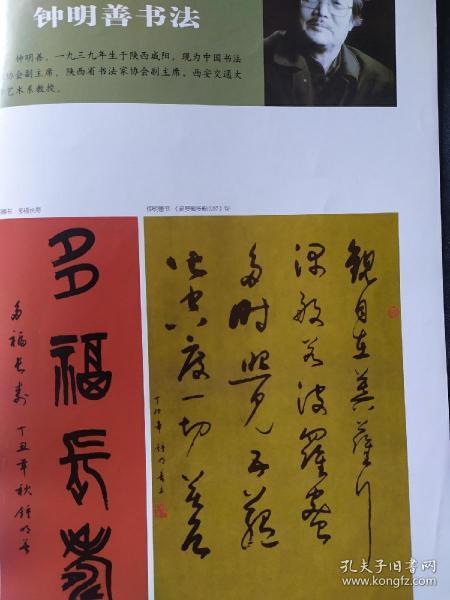 钟明善书法
钟明善，一九三九年生于陕西咸阳，现为中国书法
家协会副主席，陕西省书法家协会副主席，西安交通大
艺术系教授。
多福长寿
多福长寿
丁丑年秋钟明善
观自在菩萨行
深般若波罗蜜
多时照见五蕴
皆空度一切苦厄
孔夫子旧书网
www.kongfz.com